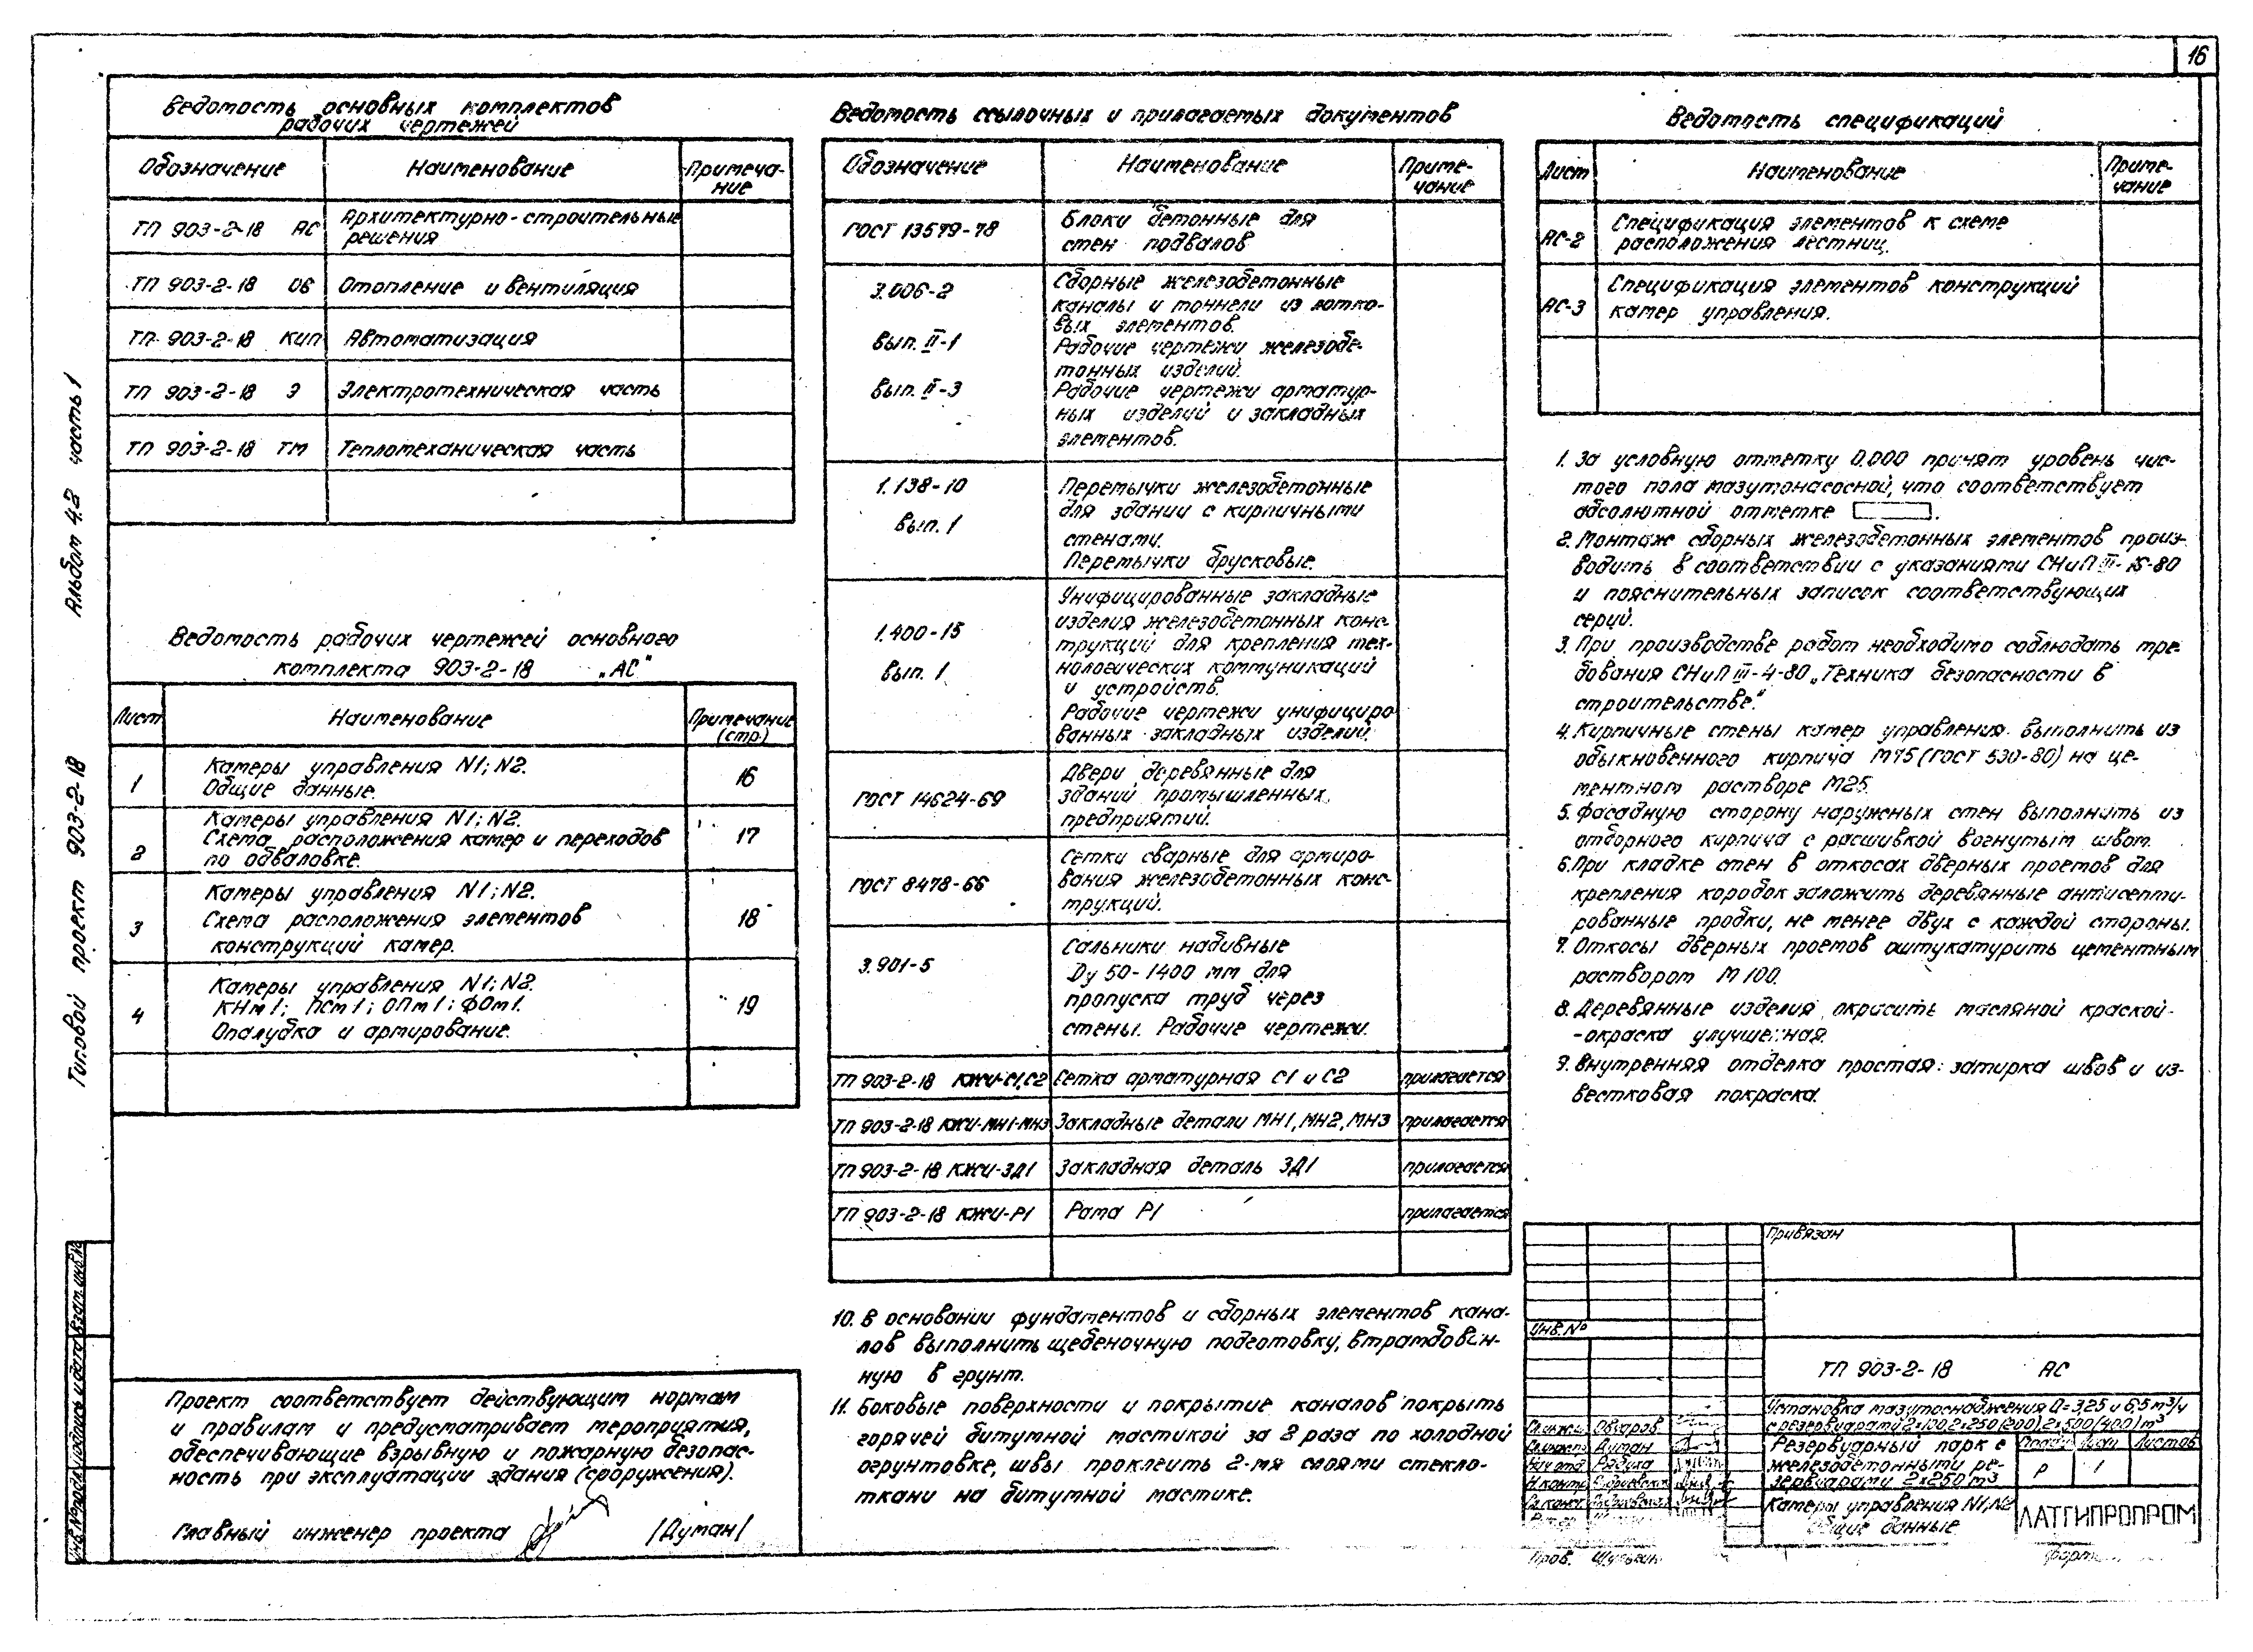 16
Ведомость основных комплектов
рабочих чертежей
Обозначение Наименование Примеча-
ние
ТП 903-2-18 АС Архитектурно-строительные
решения
ТП 903-2-18 ОВ Отопление и вентиляция
ТП 903-2-18 КИП Автоматизация
ТП 903-2-18 Э Электротехническая часть
ТП 903-2-18 ТМ Тепломеханическая часть
Ведомость рабочих чертежей основного
комплекта 903-2-18 „АС"
Лист Наименование Примечание
(стр.)
1 Камеры управления N1; N2.
Общие данные. 16
2 Камеры управления N1; N2.
Схема расположения камер и переходов
по обваловке. 17
3 Камеры управления N1; N2.
Схема расположения элементов
конструкций камер. 18
4 Камеры управления N1; N2.
КНм1; Псм1; ОПм1; ФОм1.
Опалубка и армирование. 19
Проект соответствует действующим нормам
и правилам и предусматривает мероприятия,
обеспечивающие взрывную и пожарную безопас-
ность при эксплуатации здания (сооружения).
Главный инженер проекта /Думан/
Ведомость ссылочных и прилагаемых документов
Обозначение Наименование Приме-
чание
ГОСТ 13579-78 Блоки бетонные для
стен подвалов
3.006-2 Сборные железобетонные
каналы и тоннели из лотко-
вых элементов.
вып. II-1 Рабочие чертежи железобе-
тонных изделий.
вып. II-3 Рабочие чертежи арматур-
ных изделий и закладных
элементов.
1.138-10 Перемычки железобетонные
для здании с кирпичными
вып. 1 стенами.
Перемычки брусковые.
Унифицированные закладные
изделия железобетонных конс-
1.400-15 трукций для крепления тех-
нологических коммуникаций
вып. 1 и устройств.
Рабочие чертежи унифициро
ванных закладных изделий.
Двери деревянные для
ГОСТ 14624-69 зданий промышленных
предприятий.
Сетки сварные для армиро-
ГОСТ 8478-66 вания железобетонных конс-
трукций.
3.901-5 Сальники набивные
Ду 50-1400 мм для
пропуска труб через
стены. Рабочие чертежи.
ТП 903-2-18 КЖИ-С1,С2 Сетка арматурная С1 и С2 прилагается
ТП 903-2-18 КЖИ-МН1-МН3 Закладные детали МН1, МН2, МН3 прилагается
ТП 903-2-18 КЖИ-ЗД1 Закладная деталь ЗД1 прилагается
ТП 903-2-18 КЖИ-Р1 Рама Р1 прилагается
10. В основании фундаментов и сборных элементов кана-
лов выполнить щебеночную подготовку, втрамбован-
ную в грунт.
11. Боковые поверхности и покрытие каналов покрыть
горячей битумной мастикой за 2 раза по холодной
огрунтовке, швы проклеить 2-мя слоями стекло-
ткани на битумной мастике.
Ведомость спецификаций
Лист Наименование Приме-
чание
АС-2 Спецификация элементов к схеме
расположения лестниц.
АС-3 Спецификация элементов конструкций
камер управления.
1. За условную отметку 0.000 принят уровень чис-
того пола мазутонасосной, что соответствует
абсолютной отметке .
2. Монтаж сборных железобетонных элементов произ-
водить в соответствии с указаниями СНиП III-15-80
и пояснительных записок соответствующих
серий.
3. При производстве работ необходимо соблюдать тре
бования СНиП III-4-80 „Техника безопасности в
строительстве."
4. Кирпичные стены камер управления выполнить из
обыкновенного кирпича М75 (ГОСТ 530-80) на це-
ментном растворе М25.
5. Фасадную сторону наружных стен выполнить из
отборного кирпича с расшивкой вогнутым швом.
6. При кладке стен в откосах дверных проемов для
крепления коробок заложить деревянные антисепти-
рованные пробки, не менее двух с каждой стороны.
7. Откосы дверных проемов оштукатурить цементным
раствором М 100.
8. Деревянные изделия окрасить масляной краской-
-окраска улучшенная.
9. Внутренняя отделка простая: затирка швов и из-
вестковая покраска.
Привязан
Инв. №
ТП 903-2-18 АС
Установка мазутоснабжения Q=3,25 и 6,5 м³/ч
с резервуарами 2×100, 2×250 (200), 2×500 (400) м³
Резервуарный парк с
железобетонными ре-
зервуарами 2×250 м³
Листов
Р 1
Камеры управления N1; N2
Общие данные
ЛАТГИПРОПРОМ
Думан
Пров.
Альбом 4.2 часть 1
Типовой проект 903-2-18